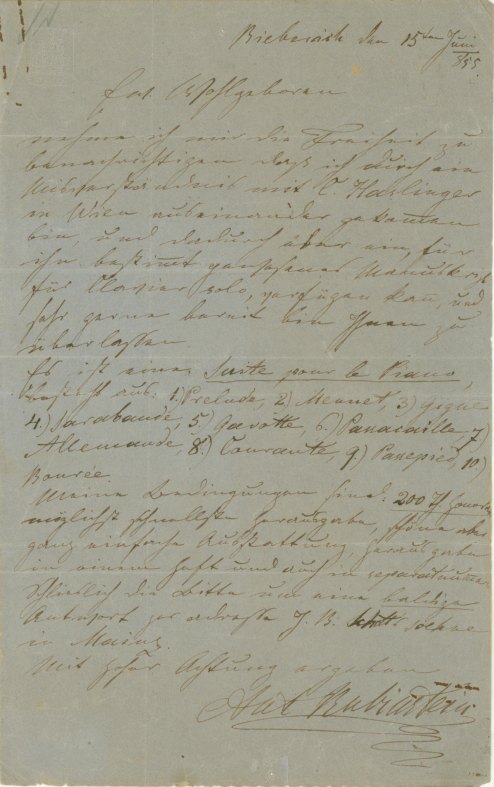 Bieberich den 15ten Juni
1855.
Ew. Wohlgeboren
nehme ich mir die Freiheit zu
benachrichtigen dass ich durch ein
Missverständnis mit C. Haslinger
in Wien auseinander gekommen
bin, und dadurch über ein, für
ihn bestimmt gewesenes Manuskript
für Clavier solo, verfügen kan, und
sehr gerne bereit bin Ihnen zu
überlassen
Es ist eine Suite pour le Piano,
besteht aus: 1.) Prelude, 2.) Menuet, 3.) Gigue
4.) Sarabande, 5.) Gavotte, 6.) Passacaille, 7.)
Allemande, 8.) Courante, 9.) Passepied, 10.)
Bourée.
Meine Bedingungen sind: 200
möglichst schnellste Herausgabe, schöne aber
ganz einfache Ausstattung, Herausgabe
in einem Heft und auch in separatnummern
Schließlich die Bitte um eine baldige
Antwort per adresse J. B. Schotts Soehne
in Mainz.
Mit hoher Achtung ergeben
Ant Rubinstein